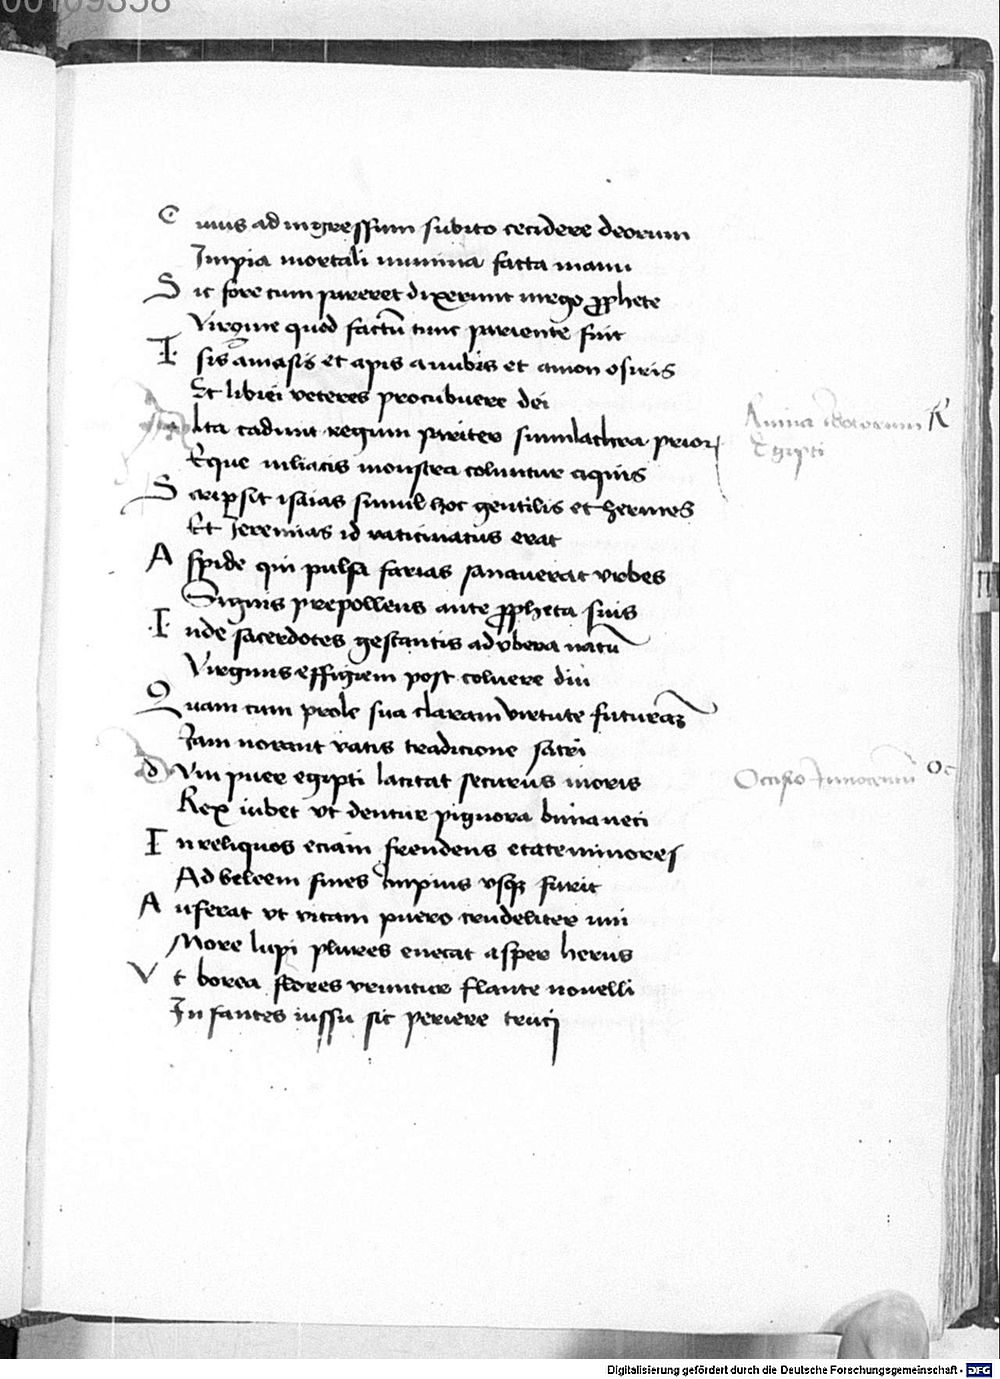 00109358
Cuius ad ingressum subito cecidere deorum
Impia mortali numina facta manu
Sic fore cum pareret dixerunt virgo ꝓphete
Virgine quod factū tunc pariente fuit
Isis amasis et apis anubis et amon osiris
Et libiei veteres procubuere dei
Alta cadunt regum pariter simulachra prioꝝ
Eque niliacis monstra coluntur aquis
Scripsit isaias simul hoc gentilis et hermes
Et Jeremias id vaticinatus erat
Aspide qui pulsa farias sanauerat vrbes
Signis prepollens ante ꝓpheta suis
Inde sacerdotes gestantis ad vbera natū
Virginis effigiem post coluere diu
Quam cum prole sua claram virtute futuraꝫ
Iam norant vatis tradicione sacri
Dum puer egipti latitat securus in oris
Rex iubet vt dentur pignora bima neci
In reliquos eciam frendens etate minores
Ad beleem fines impius vsqꝫ furit
Auferat vt vitam puero crudeliter vni
More lupi plures enecat asper herus
Vt borea flores vruntur flante nouelli
Infantes iussu sic periere truci
Ruina deorum R
Egipti
Occisio Innocentū Oc
Digitalisierung gefördert durch die Deutsche Forschungsgemeinschaft - DFG